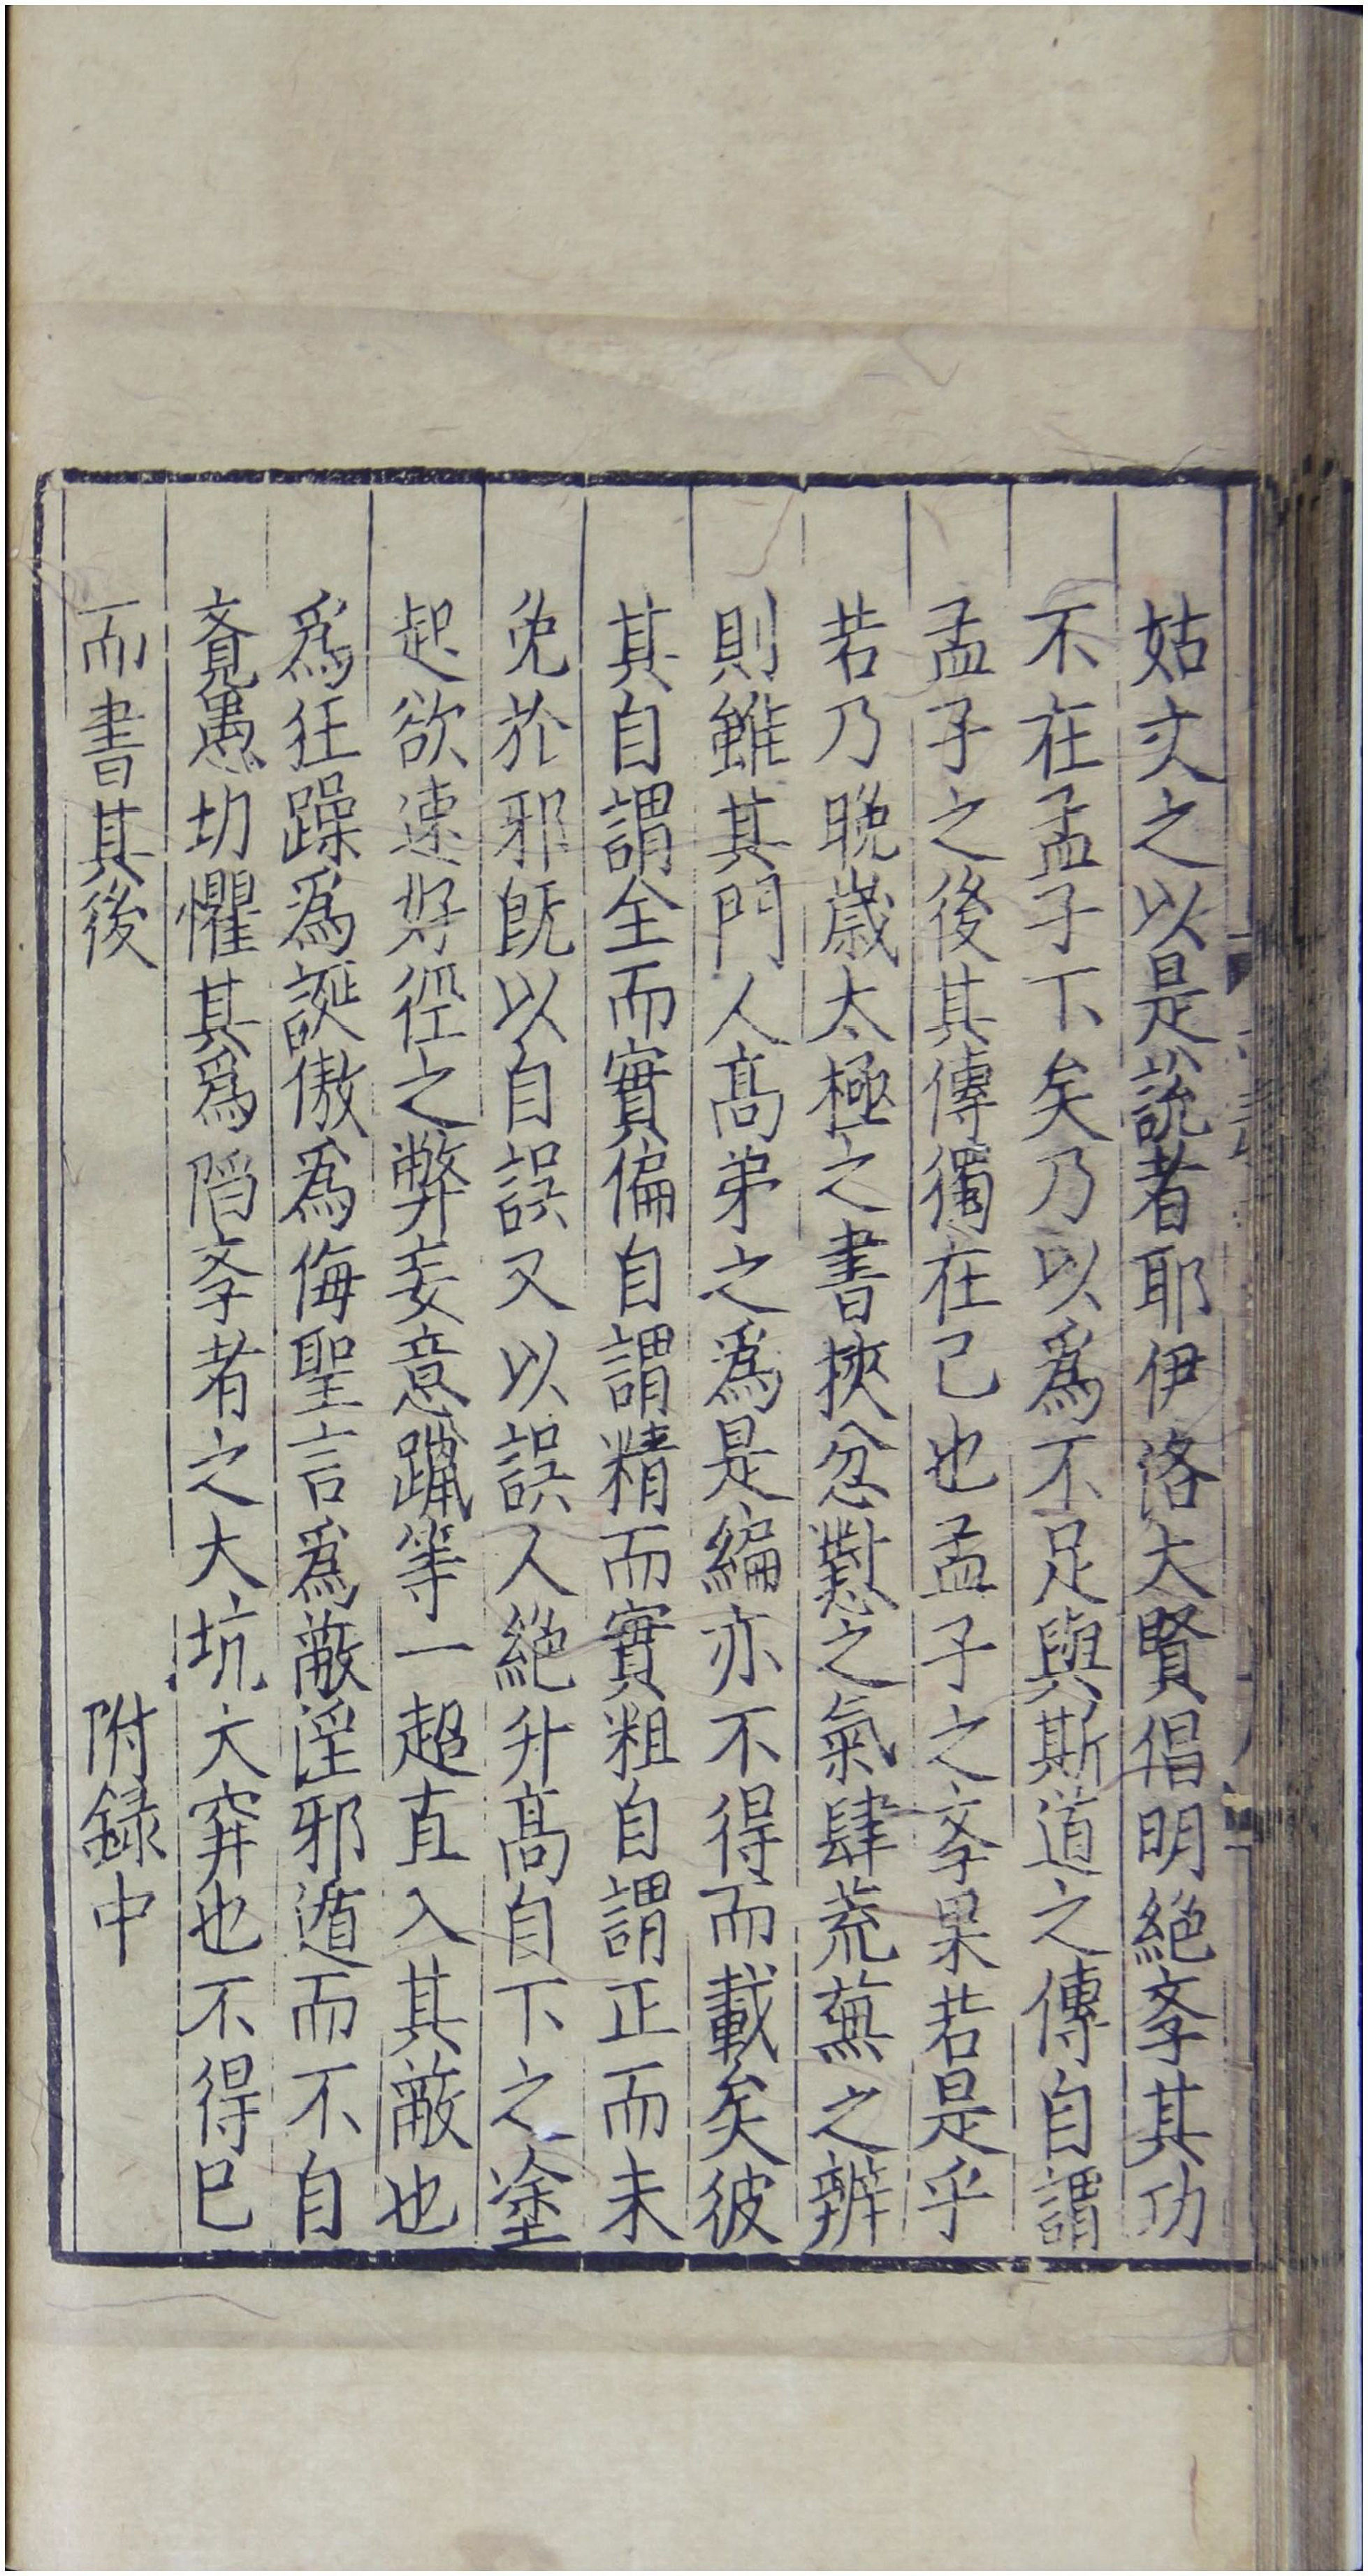 姑丈之以是說者耶伊洛大賢倡明絕斈其功
不在孟子下矣乃以爲不足與斯道之傳自謂
孟子之後其傳獨在己也孟子之斈果若是乎
若乃晚歲太極之書挾忿懟之氣肆荒蕪之辨
則雖其門人高弟之爲是編亦不得而載矣彼
其自謂全而實偏自謂精而實粗自謂正而未
免於邪旣以自誤又以誤人絕升高自下之塗
起欲速好徑之弊妄意躐等一超直入其蔽也
爲狂躁爲誕傲爲侮聖言爲蔽淫邪遁而不自
覔愚切懼其爲陷斈者之大坑大穽也不得已
而書其後 附録中